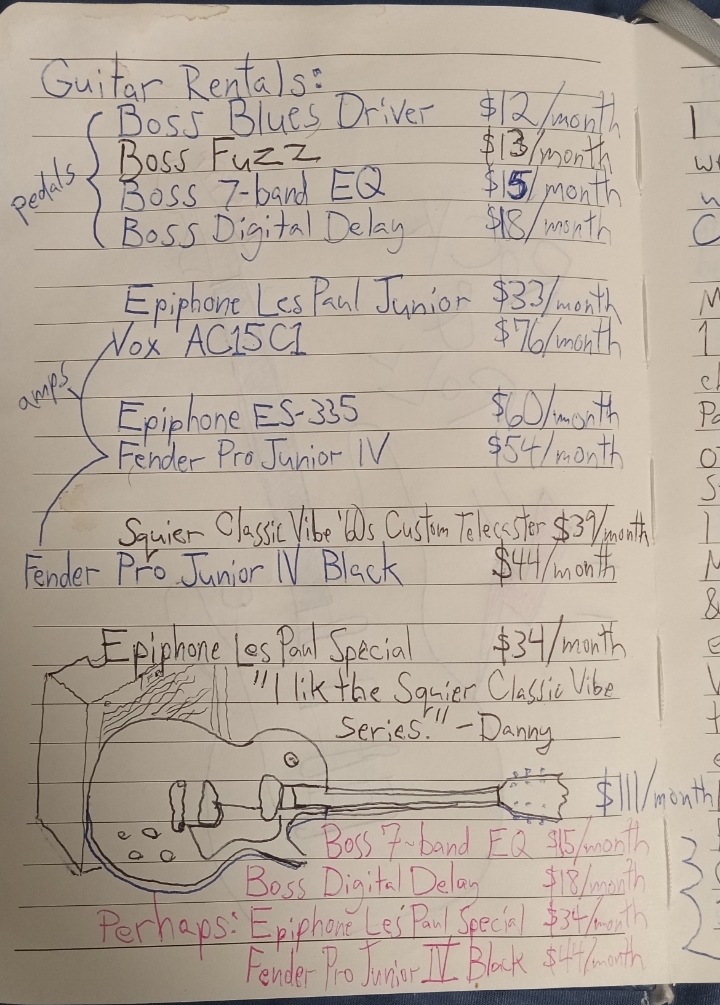 Guitar Rentals:
pedals
Boss Blues Driver $12/month
Boss Fuzz $13/month
Boss 7-band EQ $15/month
Boss Digital Delay $18/month
Epiphone Les Paul Junior $33/month
Vox AC15C1 $76/month
amps
Epiphone ES-335 $60/month
Fender Pro Junior IV $54/month
Squier Classic Vibe '60s Custom Telecaster $39/month
Fender Pro Junior IV Black $44/month
Epiphone Les Paul Special $34/month
"I lik the Squier Classic Vibe
Series." - Danny
$111/month
Boss 7-band EQ $15/month
Boss Digital Delay $18/month
Perhaps: Epiphone Les Paul Special $34/month
Fender Pro Junior IV Black $44/month